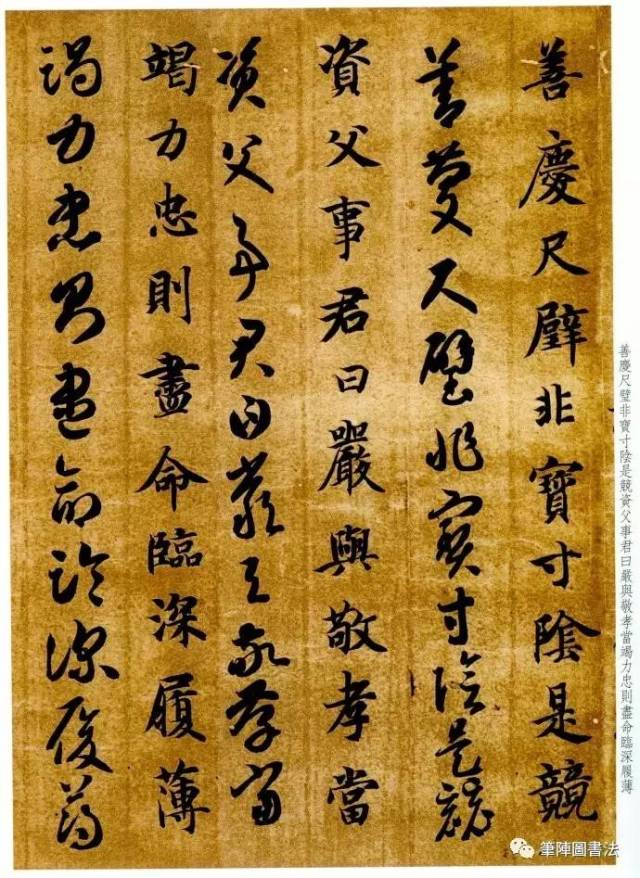 善慶尺璧非寶寸陰是競
善慶尺璧非寶寸陰是競
資父事君曰嚴與敬孝當
資父事君曰嚴與敬孝當
竭力忠則盡命臨深履薄
竭力忠則盡命臨深履薄
善慶尺璧非寶寸陰是競資父事君曰嚴與敬孝當竭力忠則盡命臨深履薄
筆陣圖書法